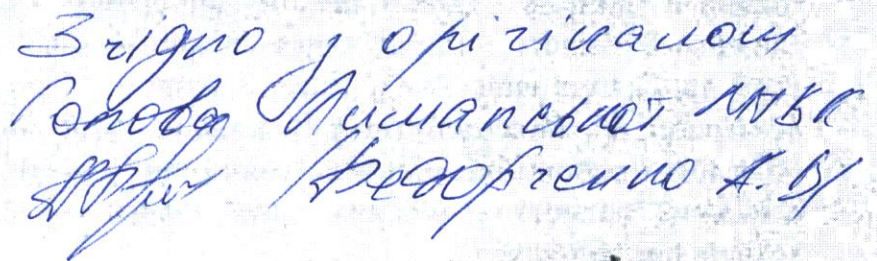 Згідно з орігіналом
Голова Лиманської МНВК
/Федорченко А. В/